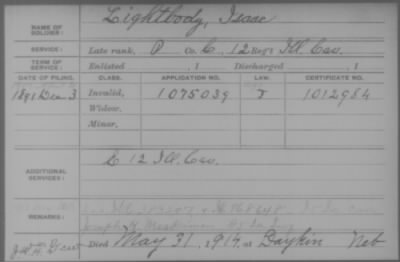 NAME OF SOLDIER: Lightbody, Isaac
SERVICE: Late rank, P Co. C, 12 Reg't Ill. Cav.
TERM OF SERVICE: Enlisted , 1 Discharged , 1
DATE OF FILING. CLASS. APPLICATION NO. LAW. CERTIFICATE NO.
1891 Dec 3 Invalid, 1075039 J 1012984
Widow,
Minor,
ADDITIONAL SERVICES: L 12 Ill. Cav.
REMARKS:
Died May 31, 1914, at Daykin Neb